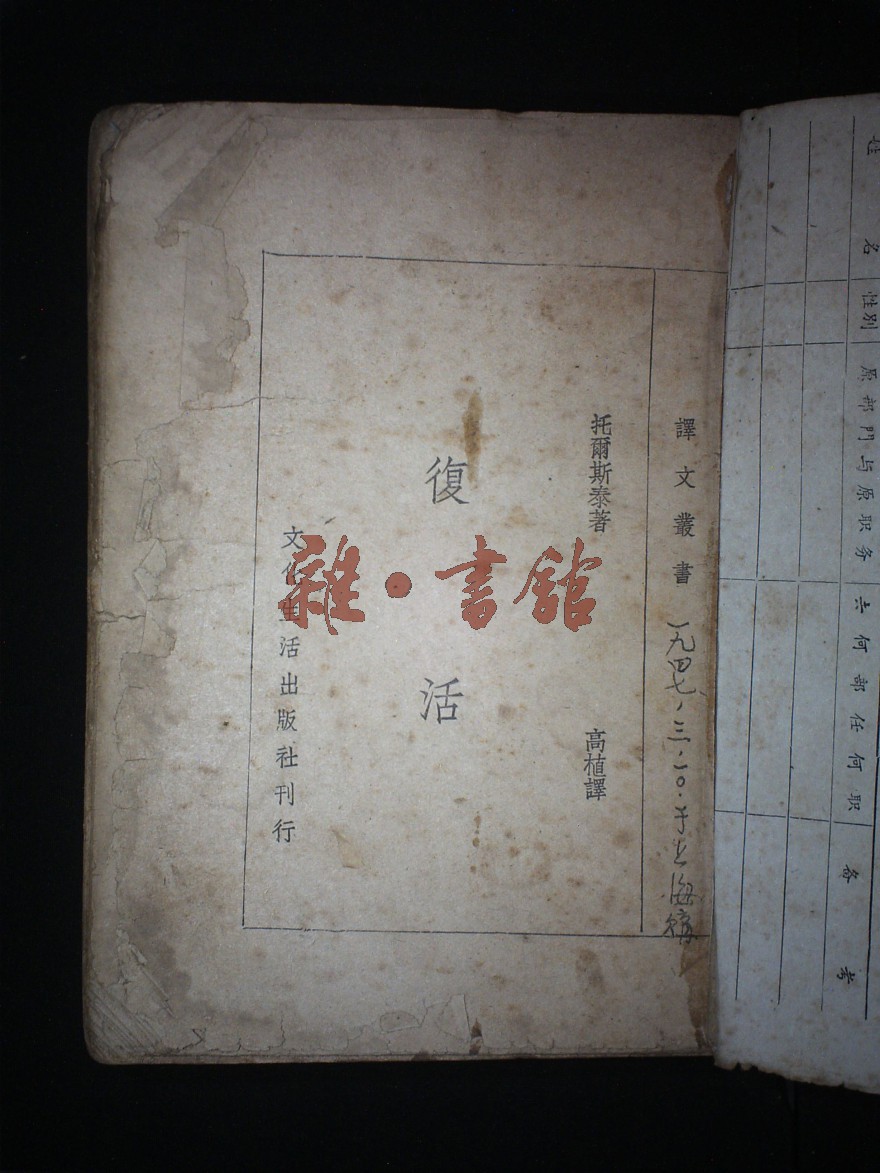 姓名
性別
原部門与原职务
何部任何职
备考
譯文叢書
一九四七.三.二〇.于上海購
托爾斯泰著
高植譯
復活
文化生活出版社刊行
雜·書館